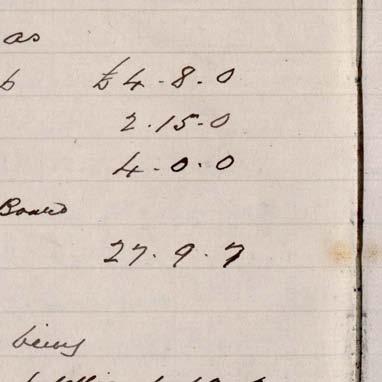 as
£4-8-0
2.15-0
4.0.0
Board
27.9.7
being